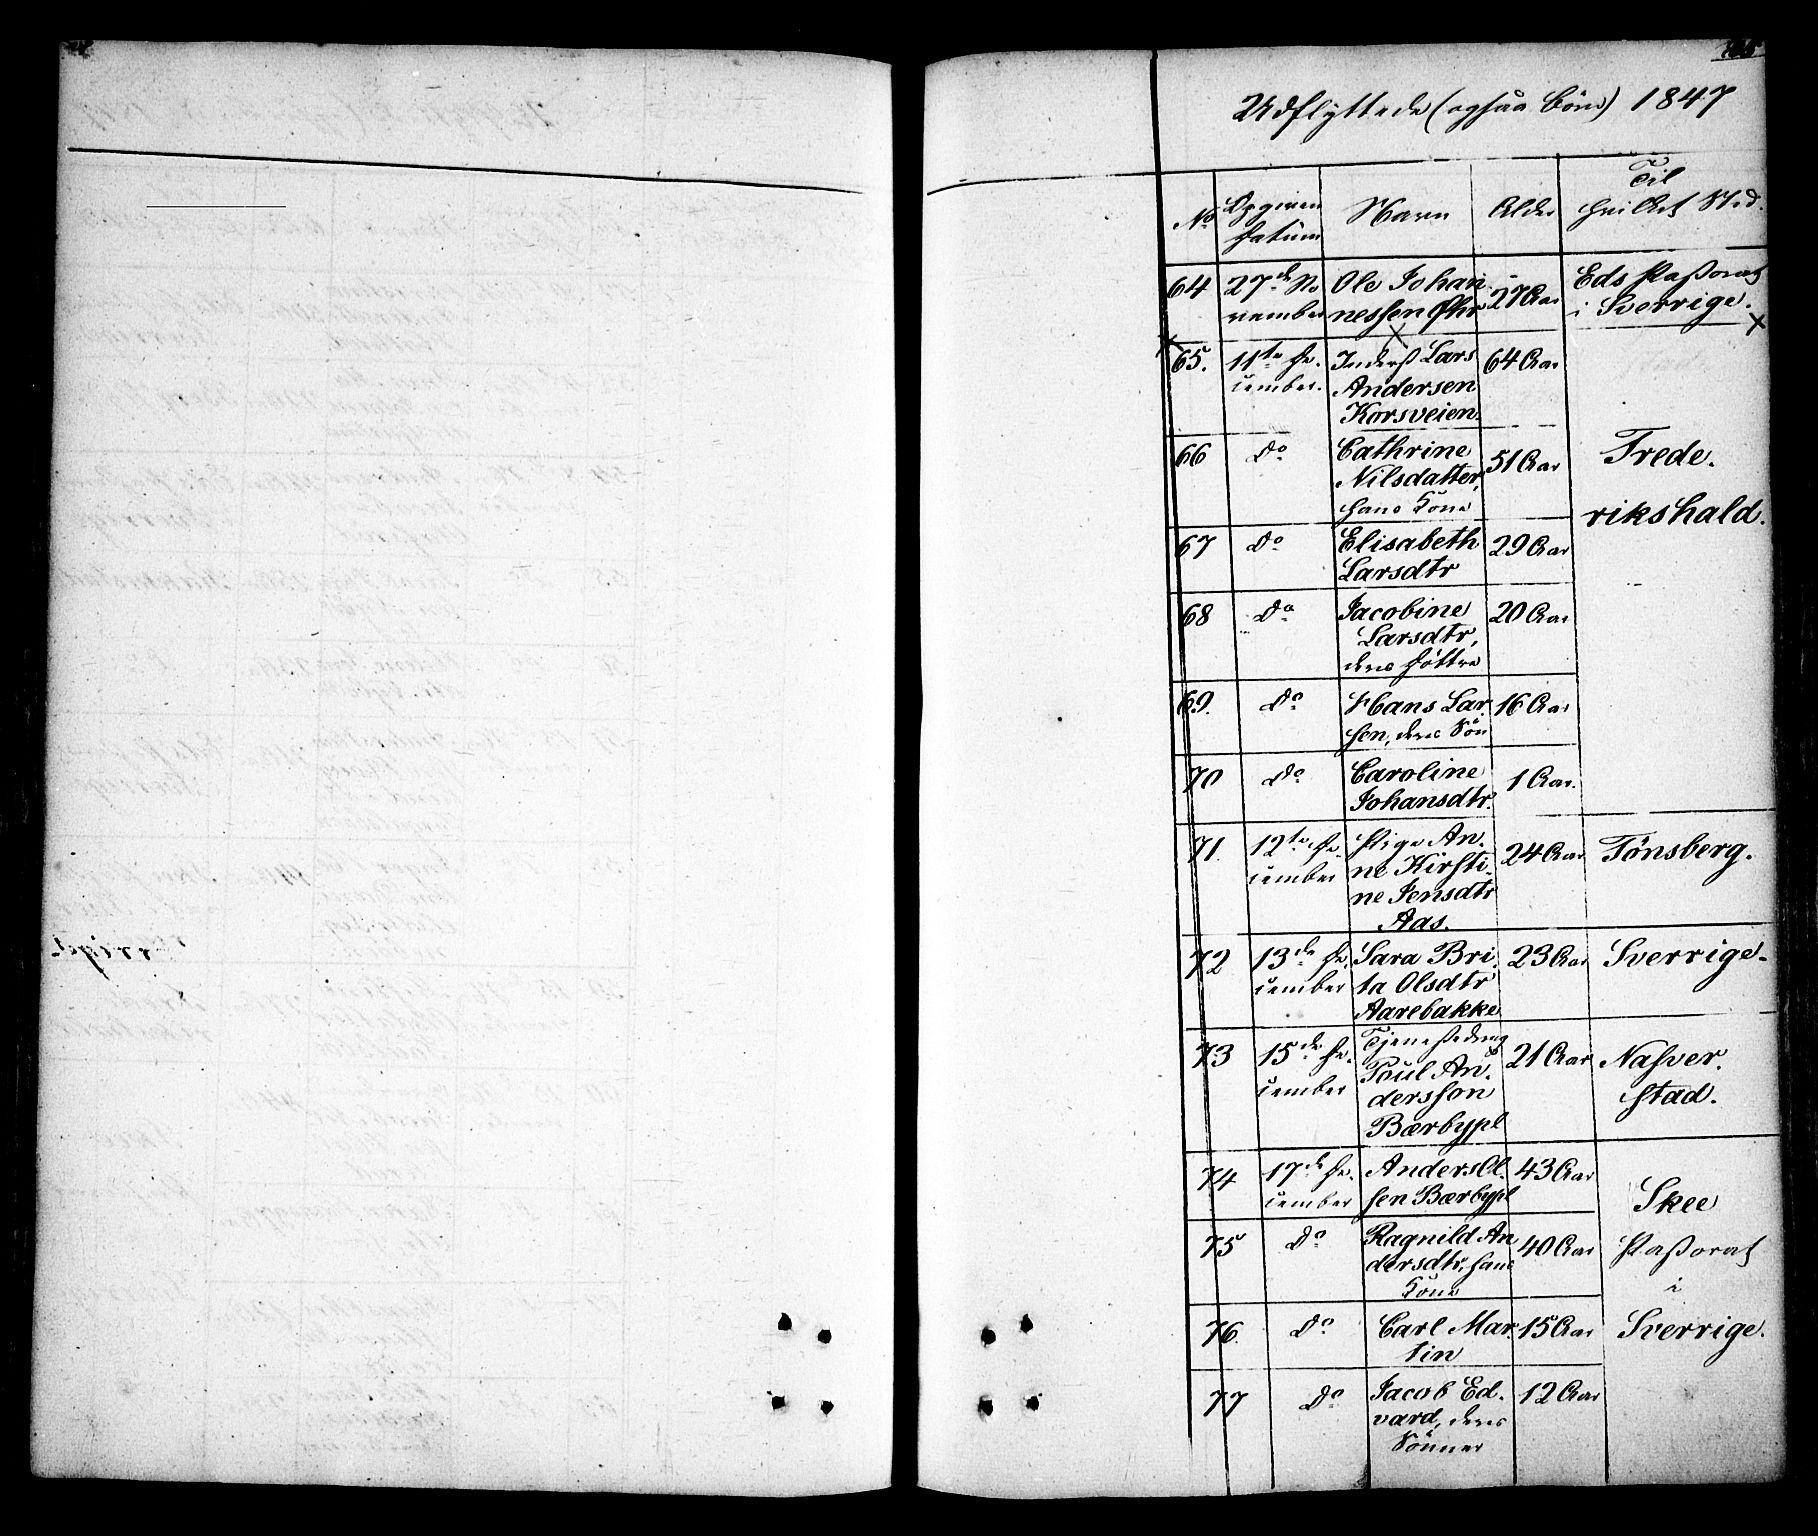 Udflyttede (ogsaa Börn) 1847
No
Opgiven
Datum
Navn
Alder
Til
hvilket Sted.
64
27de No
vember
Ole Johan
nessen
27 Aar
Eds Pastorat
i Sverrige.
65.
11te De.
cember.
Inderst Lars
Andersen
Korsveien.
64 Aar
Frede.
rikshald.
66
Do
Cathrine
Nilsdatter,
hans Kone
51 Aar
67
Do
Elisabeth
Larsdtr
29 Aar
68
Do
Jacobine
Larsdtr,
deres Döttre
20 Aar
69.
Do
Hans Lar
sen, deres Sön
16 Aar
70
Do
Caroline
Johansdtr.
1 Aar.
71.
12te De.
cember
Pige An.
ne Kirsti.
ne Jensdtr
Aas.
24 Aar
Tönsberg.
72
13de De.
cember
Sara Bri.
ta Olsdtr
Aarebakke
23 Aar
Sverrige.
73
15de De.
cember
Tjenestedreng
Poul An.
dersson
Bærbypl
21 Aar
Nasver.
stad.
74
17de De.
cember
Anders Ol.
sen Bærbypl
43 Aar
Skee
Pastorat
i
Sverrige.
75
Do
Ragnild An
dersdtr, hans
Kone
40 Aar
76.
Do
Carl Mar
tin
15 Aar
77
Do
Jacob Ed.
vard, deres
Sönner
12 Aar